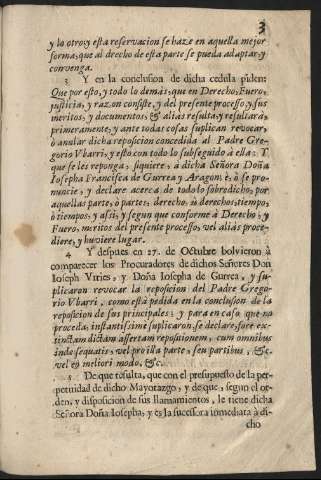 3
y lo otro; y esta reservacion se haze en aquella mejor
forma, que al drecho de esta parte se pueda adaptar, y
convenga.
3 Y en la conclusion de dicha cedula piden:
Que por esto, y todo lo demás, que en Derecho, Fuero,
justicia, y razon consiste, y del presente processo, y sus
meritos, y documentos, & aliàs resulta, y resultarà,
primeramente, y ante todas cosas suplican revocar,
ò anular dicha reposicion concedida al Padre Gre-
gorio Ubarri, y esto con todo lo subseguido à ella: Y
que se les reponga, siquiere, à dicha Señora Doña
Iosepha Francisca de Gurrea y Aragon: è, ò se pro-
nuncie, y declare acerca de todo lo sobredicho, por
aquellas parte, ò partes; derecho, ù derechos; tiempo,
ò tiempos; y assi, y segun que conforme à Derecho, y
Fuero, meritos del presente processo, vel aliàs proce-
diere, y huviere lugar.
4 Y despues en 27. de Octubre bolvieron à
comparecer los Procuradores de dichos Señores Don
Ioseph Vries, y Doña Iosepha de Gurrea, y su-
plicaron revocar la reposicion del Padre Grego-
rio Vbarri, como està pedida en la conclusion de la
reposicion de sus principales; y para en caso que no
proceda, instantissimè suplicaron, se declare, fore ex-
tinctam dictam assertam repositionem, cum omnibus
inde sequutis, vel pro illa parte, seu partibus, &c.
vel en meliori modo, &c.
5 De que resulta, que con el presupuesto de la per-
petuidad de dicho Mayorazgo, y de que, segun el or-
den, y disposicion de sus llamamientos, le tiene dicha
Señora Doña Iosepha, y es la sucessora inmediata à di-
cho